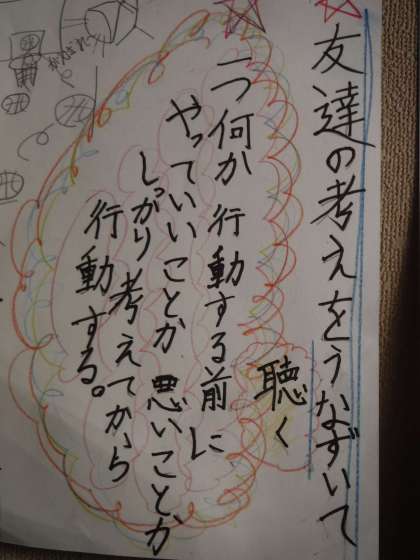 友達の考えをうなずいて
聴く
一つ何か行動する前に
やっていいことか悪いことか
しっかり考えてから
行動する。